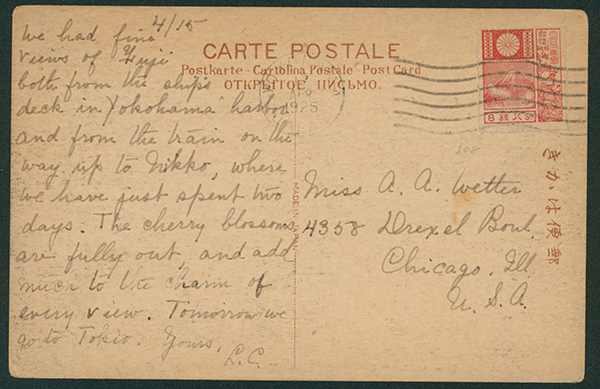 4/15
We had fine
views of Fuji
both from the ship's
deck in Yokohama harbor
and from the train on the
way up to Nikko, where
we have just spent two
days. The cherry blossoms
are fully out, and add
much to the charm of
every view. Tomorrow we
go to Tokio. Yours,
L.C.
CARTE POSTALE
Postkarte - Cartolina Postale - Post Card
ОТКРЫТОЕ ПИСЬМО.
MADE IN JAPAN
Miss A. A. Wetter
4358 Drexel Boul.
Chicago. Ill
U. S. A.
郵便はかき